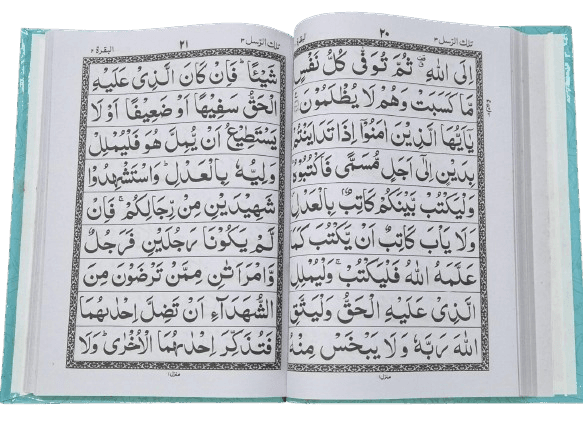 تلك الرسل ٣
٢٠
اِلَى اللّٰهِ ۗ ثُمَّ تُوَفّٰى كُلُّ نَفْسٍ
مَّا كَسَبَتْ وَهُمْ لَا يُظْلَمُوْنَ
يٰۤاَيُّهَا الَّذِيْنَ اٰمَنُوْۤا اِذَا تَدَايَنْتُمْ
بِدَيْنٍ اِلٰٓى اَجَلٍ مُّسَمًّى فَاكْتُبُوْهُ
وَلْيَكْتُبْ بَّيْنَكُمْ كَاتِبٌۢ بِالْعَدْلِ
وَلَا يَاْبَ كَاتِبٌ اَنْ يَّكْتُبَ كَمَا
عَلَّمَهُ اللّٰهُ فَلْيَكْتُبْ ۚ وَلْيُمْلِلِ
الَّذِيْ عَلَيْهِ الْحَقُّ وَلْيَتَّقِ
اللّٰهَ رَبَّهٗ وَلَا يَبْخَسْ مِنْهُ
منزل١
تلك الرسل ٣
٢١
البقرة ٢
شَيْـًٔا ؕ فَاِنْ كَانَ الَّذِيْ عَلَيْهِ
الْحَقُّ سَفِيْهًا اَوْ ضَعِيْفًا اَوْ لَا
يَسْتَطِيْعُ اَنْ يُّمِلَّ هُوَ فَلْيُمْلِلْ
وَلِيُّهٗ بِالْعَدْلِ ؕ وَاسْتَشْهِدُوْا
شَهِيْدَيْنِ مِنْ رِّجَالِكُمْ ۚ فَاِنْ
لَّمْ يَكُوْنَا رَجُلَيْنِ فَرَجُلٌ
وَّامْرَاَتٰنِ مِمَّنْ تَرْضَوْنَ مِنَ
الشُّهَدَآءِ اَنْ تَضِلَّ اِحْدٰىهُمَا
فَتُذَكِّرَ اِحْدٰىهُمَا الْاُخْرٰى ؕ وَلَا
منزل١